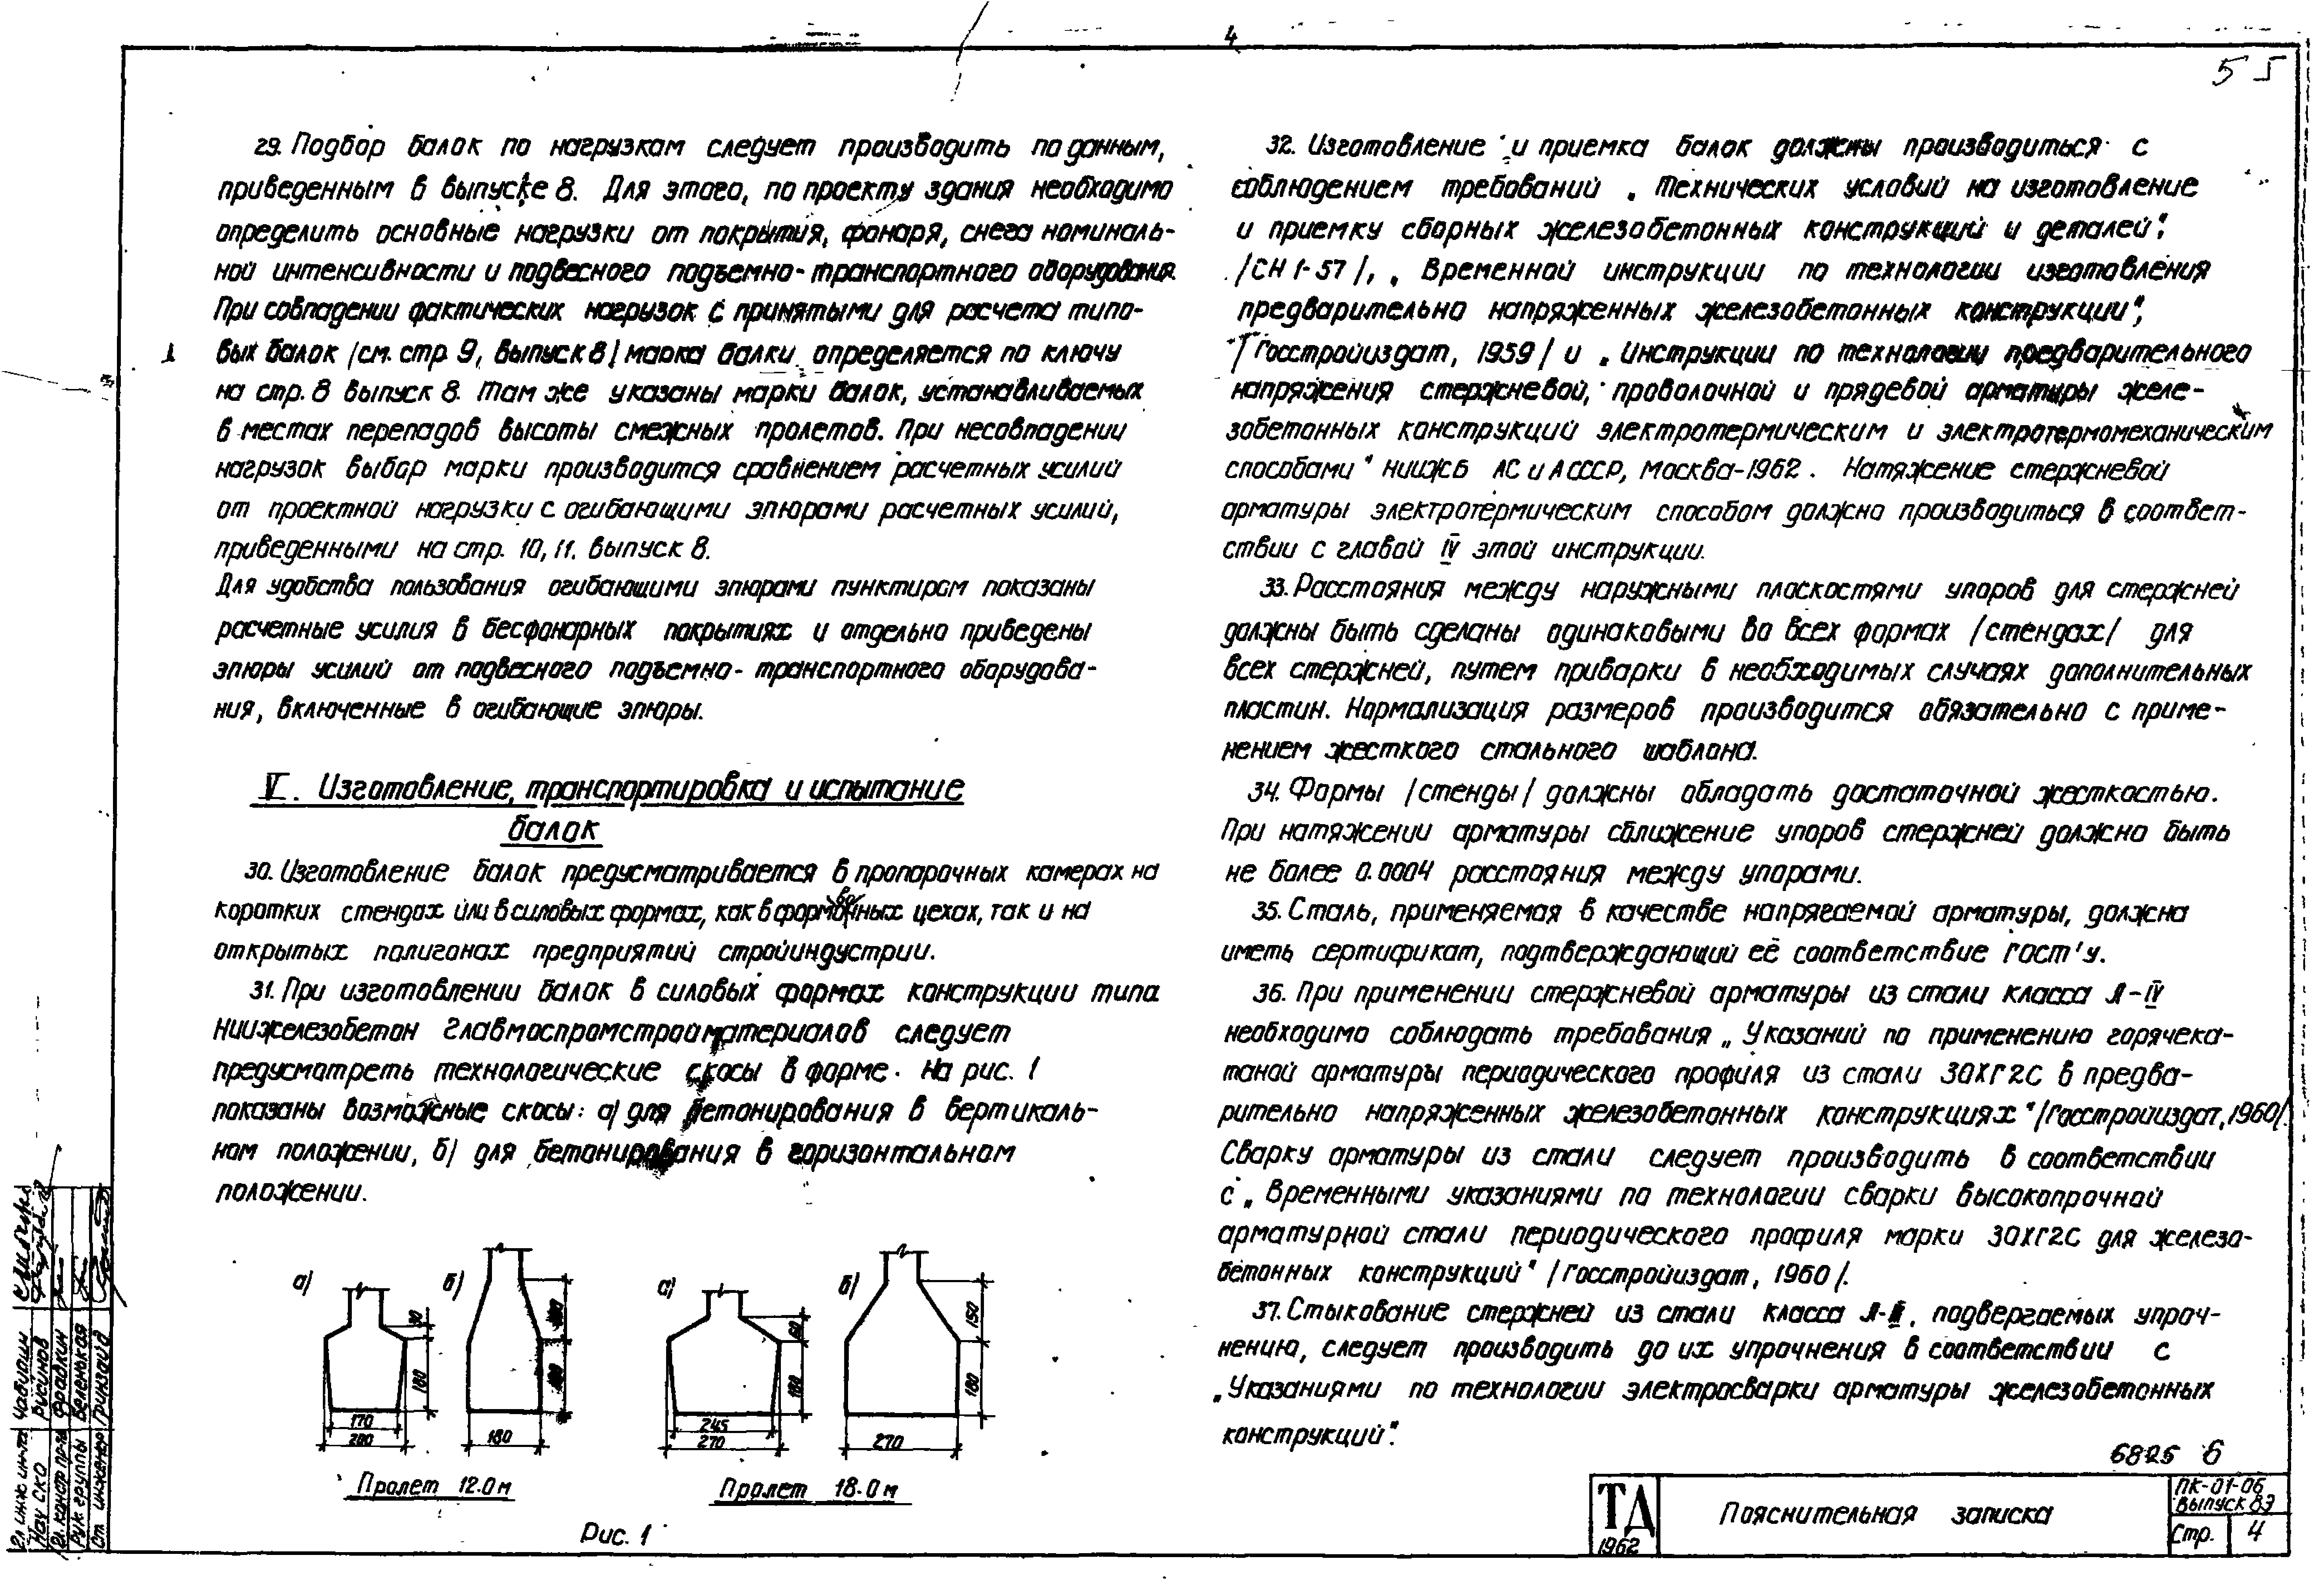 4
5
29. Подбор балок по нагрузкам следует производить по данным,
приведенным в выпуске 8. Для этого, по проекту здания необходимо
определить основные нагрузки от покрытия, фонаря, снега номиналь-
ной интенсивности и подвесного подъемно-транспортного оборудования.
При совпадении фактических нагрузок с принятыми для расчета типо-
вых балок /см. стр 9, выпуск 8/ марка балки определяется по ключу
на стр. 8 выпуск 8. Там же указаны марки балок, устанавливаемых
в местах перепадов высоты смежных пролетов. При несовпадении
нагрузок выбор марки производится сравнением расчетных усилий
от проектной нагрузки с огибающими эпюрами расчетных усилий,
приведенными на стр. 10, 11. выпуск 8.
Для удобства пользования огибающими эпюрами пунктиром показаны
расчетные усилия в бесфонарных покрытиях и отдельно приведены
эпюры усилий от подвесного подъемно-транспортного оборудова-
ния, включенные в огибающие эпюры.
V. Изготовление, транспортировка и испытание
балок
30. Изготовление балок предусматривается в пропарочных камерах на
коротких стендах или в силовых формах, как в формовочных цехах, так и на
открытых полигонах предприятий стройиндустрии.
31. При изготовлении балок в силовых формах конструкции типа
НИИЖелезобетон Главмоспромстройматериалов следует
предусмотреть технологические скосы в форме. На рис. 1
показаны возможные скосы: а/ для бетонирования в вертикаль-
ном положении, б/ для бетонирования в горизонтальном
положении.
а/ б/ а/ б/
180 60 180 150 180
170 245
200 180 270 270
Пролет 12.0м Пролет 18.0м
Рис. 1
32. Изготовление и приемка балок должны производиться с
соблюдением требований „Технических условий на изготовление
и приемку сборных железобетонных конструкций и деталей",
/СН 1-57/, „Временной инструкции по технологии изготовления
предварительно напряженных железобетонных конструкции",
/Госстройиздат, 1959/ и „Инструкции по технологии предварительного
напряжения стержневой, проволочной и прядевой арматуры желе-
зобетонных конструкций электротермическим и электротермомеханическим
способами" НИИЖБ АС и А СССР, Москва-1962. Натяжение стержневой
арматуры электротермическим способом должно производиться в соответ-
ствии с главой IV этой инструкции.
33. Расстояния между наружными плоскостями упоров для стержней
должны быть сделаны одинаковыми во всех формах /стендах/ для
всех стержней, путем приварки в необходимых случаях дополнительных
пластин. Нормализация размеров производится обязательно с приме-
нением жесткого стального шаблона.
34. Формы /стенды/ должны обладать достаточной жесткостью.
При натяжении арматуры сближение упоров стержней должно быть
не более 0.0004 расстояния между упорами.
35. Сталь, применяемая в качестве напрягаемой арматуры, должна
иметь сертификат, подтверждающий её соответствие ГОСТ'у.
36. При применении стержневой арматуры из стали класса А-IV
необходимо соблюдать требования „Указаний по применению горячека-
таной арматуры периодического профиля из стали 30ХГ2С в предва-
рительно напряженных железобетонных конструкциях" /Госстройиздат, 1960/.
Сварку арматуры из стали следует производить в соответствии
с „Временными указаниями по технологии сварки высокопрочной
арматурной стали периодического профиля марки 30ХГ2С для железо-
бетонных конструкций" /Госстройиздат, 1960/.
37. Стыкование стержней из стали класса А-III, подвергаемых упроч-
нению, следует производить до их упрочнения в соответствии с
„Указаниями по технологии электросварки арматуры железобетонных
конструкций".
6825 6
ТД
1962
Пояснительная записка
ПК-01-06
Выпуск 8э
Стр. 4
Нач СКО Русинов
Гл. констр пр-та Фрадкин
Рук группы Беленькая
Ст инженер Гринзайд